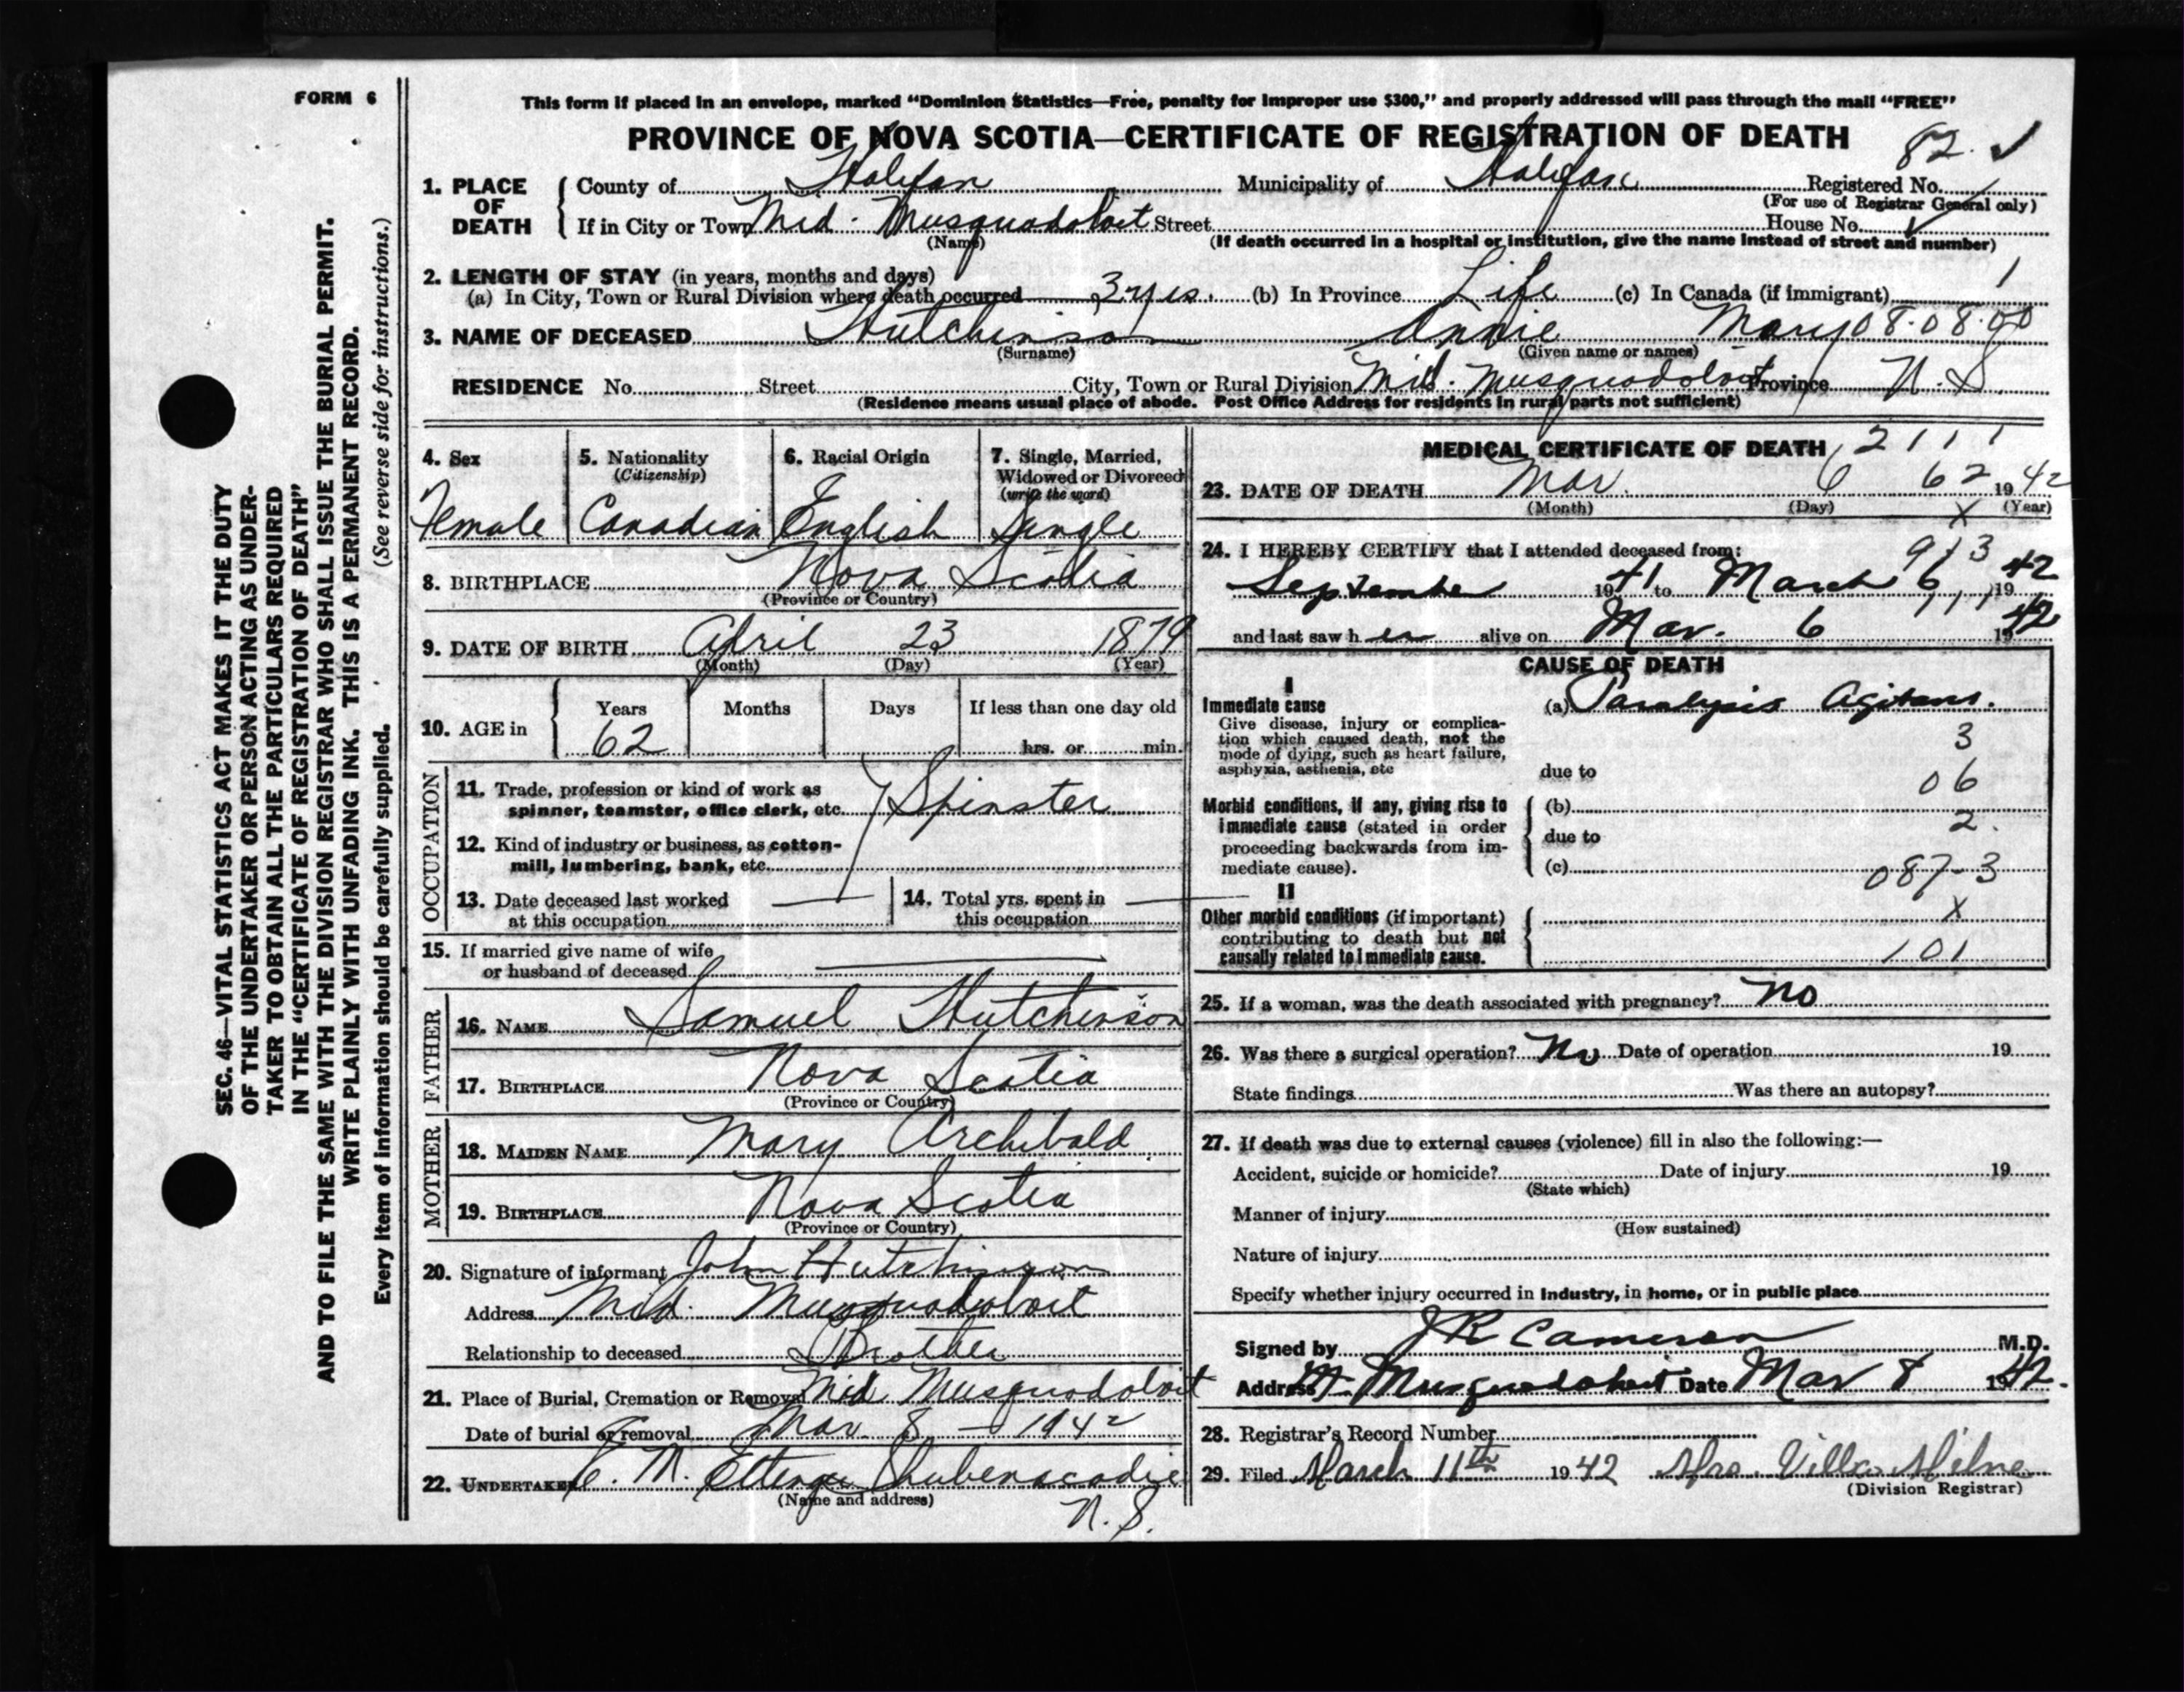 FORM 6
SEC. 46—VITAL STATISTICS ACT MAKES IT THE DUTY
OF THE UNDERTAKER OR PERSON ACTING AS UNDER-
TAKER TO OBTAIN ALL THE PARTICULARS REQUIRED
IN THE "CERTIFICATE OF REGISTRATION OF DEATH"
AND TO FILE THE SAME WITH THE DIVISION REGISTRAR WHO SHALL ISSUE THE BURIAL PERMIT.
WRITE PLAINLY WITH UNFADING INK. THIS IS A PERMANENT RECORD.
Every item of information should be carefully supplied. (See reverse side for instructions.)
This form if placed in an envelope, marked "Dominion Statistics—Free, penalty for improper use $300," and properly addressed will pass through the mail "FREE"
PROVINCE OF NOVA SCOTIA—CERTIFICATE OF REGISTRATION OF DEATH
82
1. PLACE OF DEATH County of Halifax Municipality of Halifax Registered No.
(For use of Registrar General only)
If in City or Town Mid. Musquodoboit Street House No.
(Name) (If death occurred in a hospital or institution, give the name instead of street and number)
2. LENGTH OF STAY (in years, months and days)
(a) In City, Town or Rural Division where death occurred 3 yrs. (b) In Province Life (c) In Canada (if immigrant)
3. NAME OF DECEASED Hutchinson Annie Mary 08.08.00
(Surname) (Given name or names)
RESIDENCE No. Street City, Town or Rural Division Mid. Musquodoboit Province N.S
(Residence means usual place of abode. Post Office Address for residents in rural parts not sufficient)
4. Sex 5. Nationality 6. Racial Origin 7. Single, Married,
(Citizenship) Widowed or Divorced
(write the word)
Female Canadian English Single
8. BIRTHPLACE Nova Scotia
(Province or Country)
9. DATE OF BIRTH April 23 1879
(Month) (Day) (Year)
10. AGE in Years Months Days If less than one day old
62 hrs. or min.
OCCUPATION
11. Trade, profession or kind of work as
spinner, teamster, office clerk, etc. Spinster
12. Kind of industry or business, as cotton-
mill, lumbering, bank, etc.
13. Date deceased last worked 14. Total yrs. spent in
at this occupation this occupation
15. If married give name of wife
or husband of deceased
FATHER
16. NAME Samuel Hutchinson
17. BIRTHPLACE Nova Scotia
(Province or Country)
MOTHER
18. MAIDEN NAME Mary Archibald
19. BIRTHPLACE Nova Scotia
(Province or Country)
20. Signature of informant John Hutchinson
Address Mid. Musquodoboit
Relationship to deceased Brother
21. Place of Burial, Cremation or Removal Mid Musquodoboit
Date of burial or removal Mar. 8 – 1942
22. UNDERTAKER M. Shubenacadie
(Name and address) N.S.
MEDICAL CERTIFICATE OF DEATH 2111
23. DATE OF DEATH Mar. 6 62 1942
(Month) (Day) X (Year)
24. I HEREBY CERTIFY that I attended deceased from: 913
September 1941 to March 6, 1942
and last saw her alive on Mar. 6 1942
CAUSE OF DEATH
I
Immediate cause (a) Paralysis Agitans.
Give disease, injury or complica-
tion which caused death, not the 3
mode of dying, such as heart failure,
asphyxia, asthenia, etc due to
06
Morbid conditions, if any, giving rise to (b)
immediate cause (stated in order 2.
proceeding backwards from im- due to
mediate cause). (c) 087-3
II
Other morbid conditions (if important) X
contributing to death but not
causally related to immediate cause. 101
25. If a woman, was the death associated with pregnancy? No
26. Was there a surgical operation? No Date of operation 19
State findings Was there an autopsy?
27. If death was due to external causes (violence) fill in also the following:—
Accident, suicide or homicide? Date of injury 19
(State which)
Manner of injury
(How sustained)
Nature of injury
Specify whether injury occurred in industry, in home, or in public place
Signed by J R Cameron M.D.
Address M. Musquodoboit Date Mar 8 1942.
28. Registrar's Record Number
29. Filed March 11th 1942 Mrs. Villa Milne
(Division Registrar)